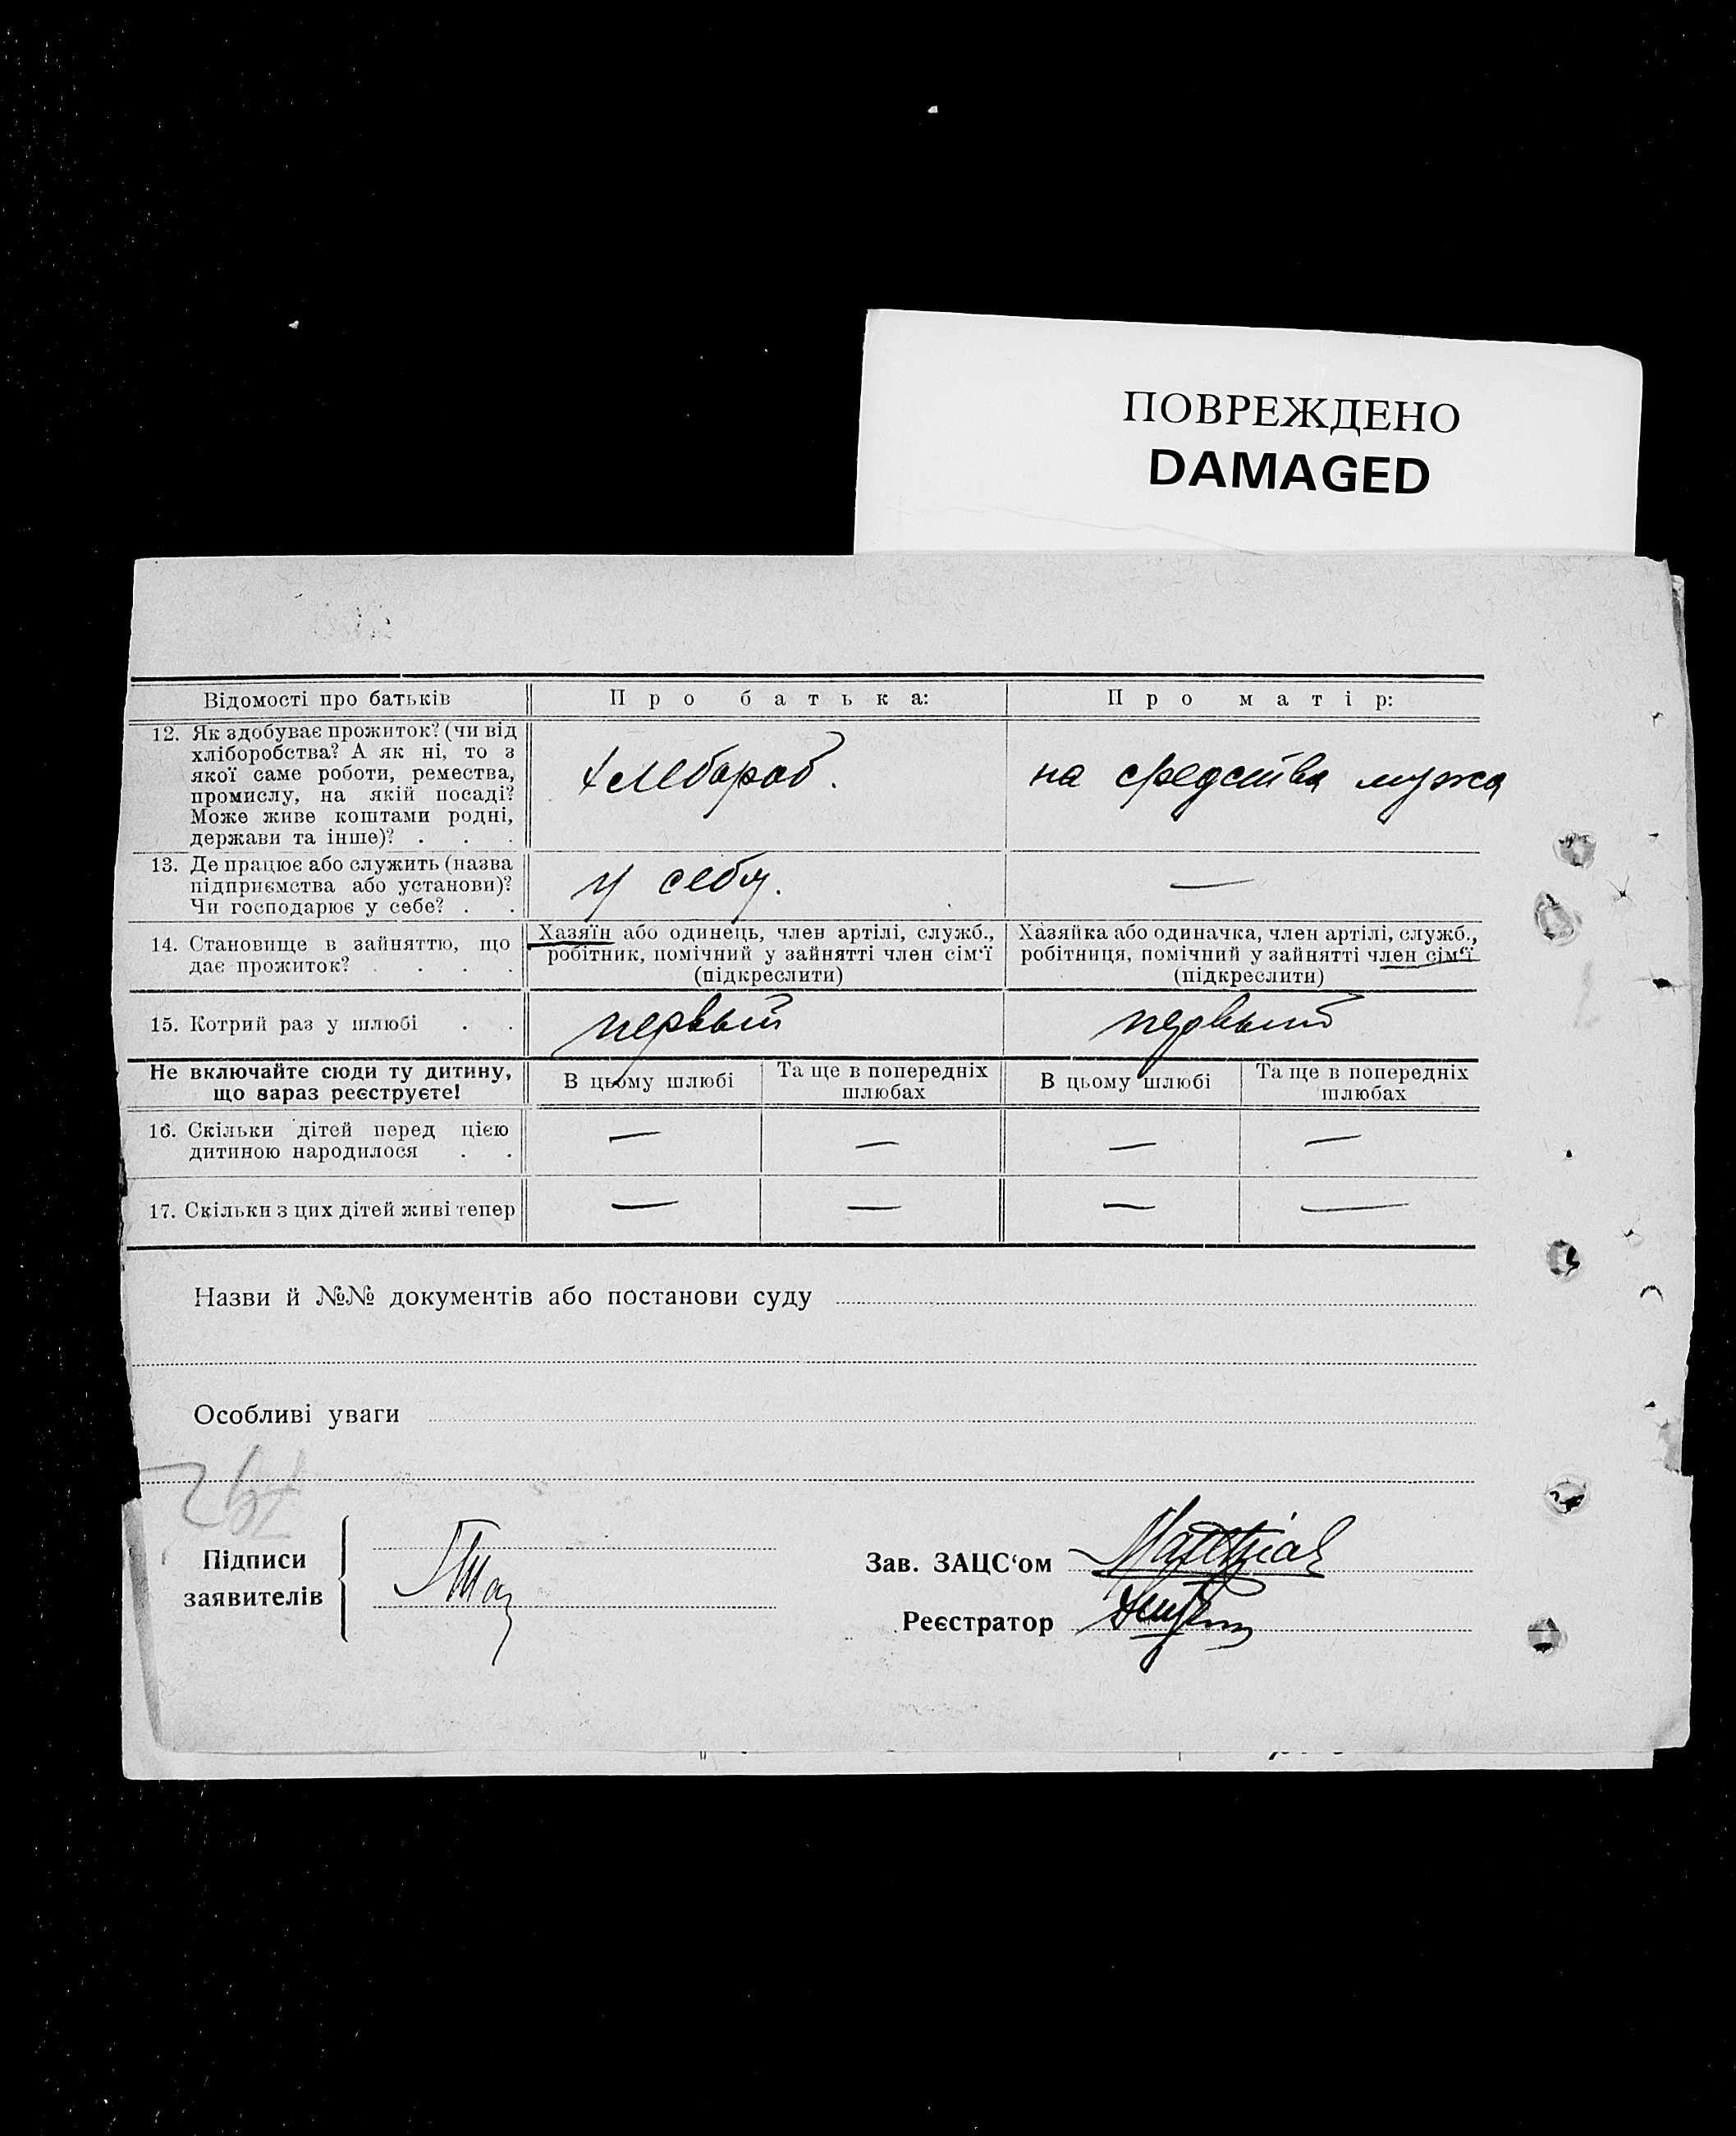 ПОВРЕЖДЕНО
DAMAGED
Відомості про батьків
Про батька:
Про матір:
12. Як здобуває прожиток? (чи від
хліборобства? А як ні, то з
якої саме роботи, ремества,
промислу, на якій посаді?
Може живе коштами родні,
держави та інше)? . . .
хлебороб.
на средства мужа
13. Де працює або служить (назва
підприємства або установи)?
Чи господарює у себе? . .
у себя.
—
14. Становище в зайняттю, що
дає прожиток? . . . .
Хазяїн або одинець, член артілі, служб.,
робітник, помічний у зайнятті член сім‘ї
(підкреслити)
Хазяйка або одиначка, член артілі, служб.,
робітниця, помічний у зайнятті член сім‘ї
(підкреслити)
15. Котрий раз у шлюбі . .
первый
первый
Не включайте сюди ту дитину,
що зараз реєструєте!
В цьому шлюбі
Та ще в попередніх
шлюбах
В цьому шлюбі
Та ще в попередніх
шлюбах
16. Скільки дітей перед цією
дитиною народилося . .
— — — —
17. Скільки з цих дітей живі тепер
— — — —
Назви й №№ документів або постанови суду
Особливі уваги
Підписи
заявителів
Зав. ЗАЦС‘ом
Реєстратор